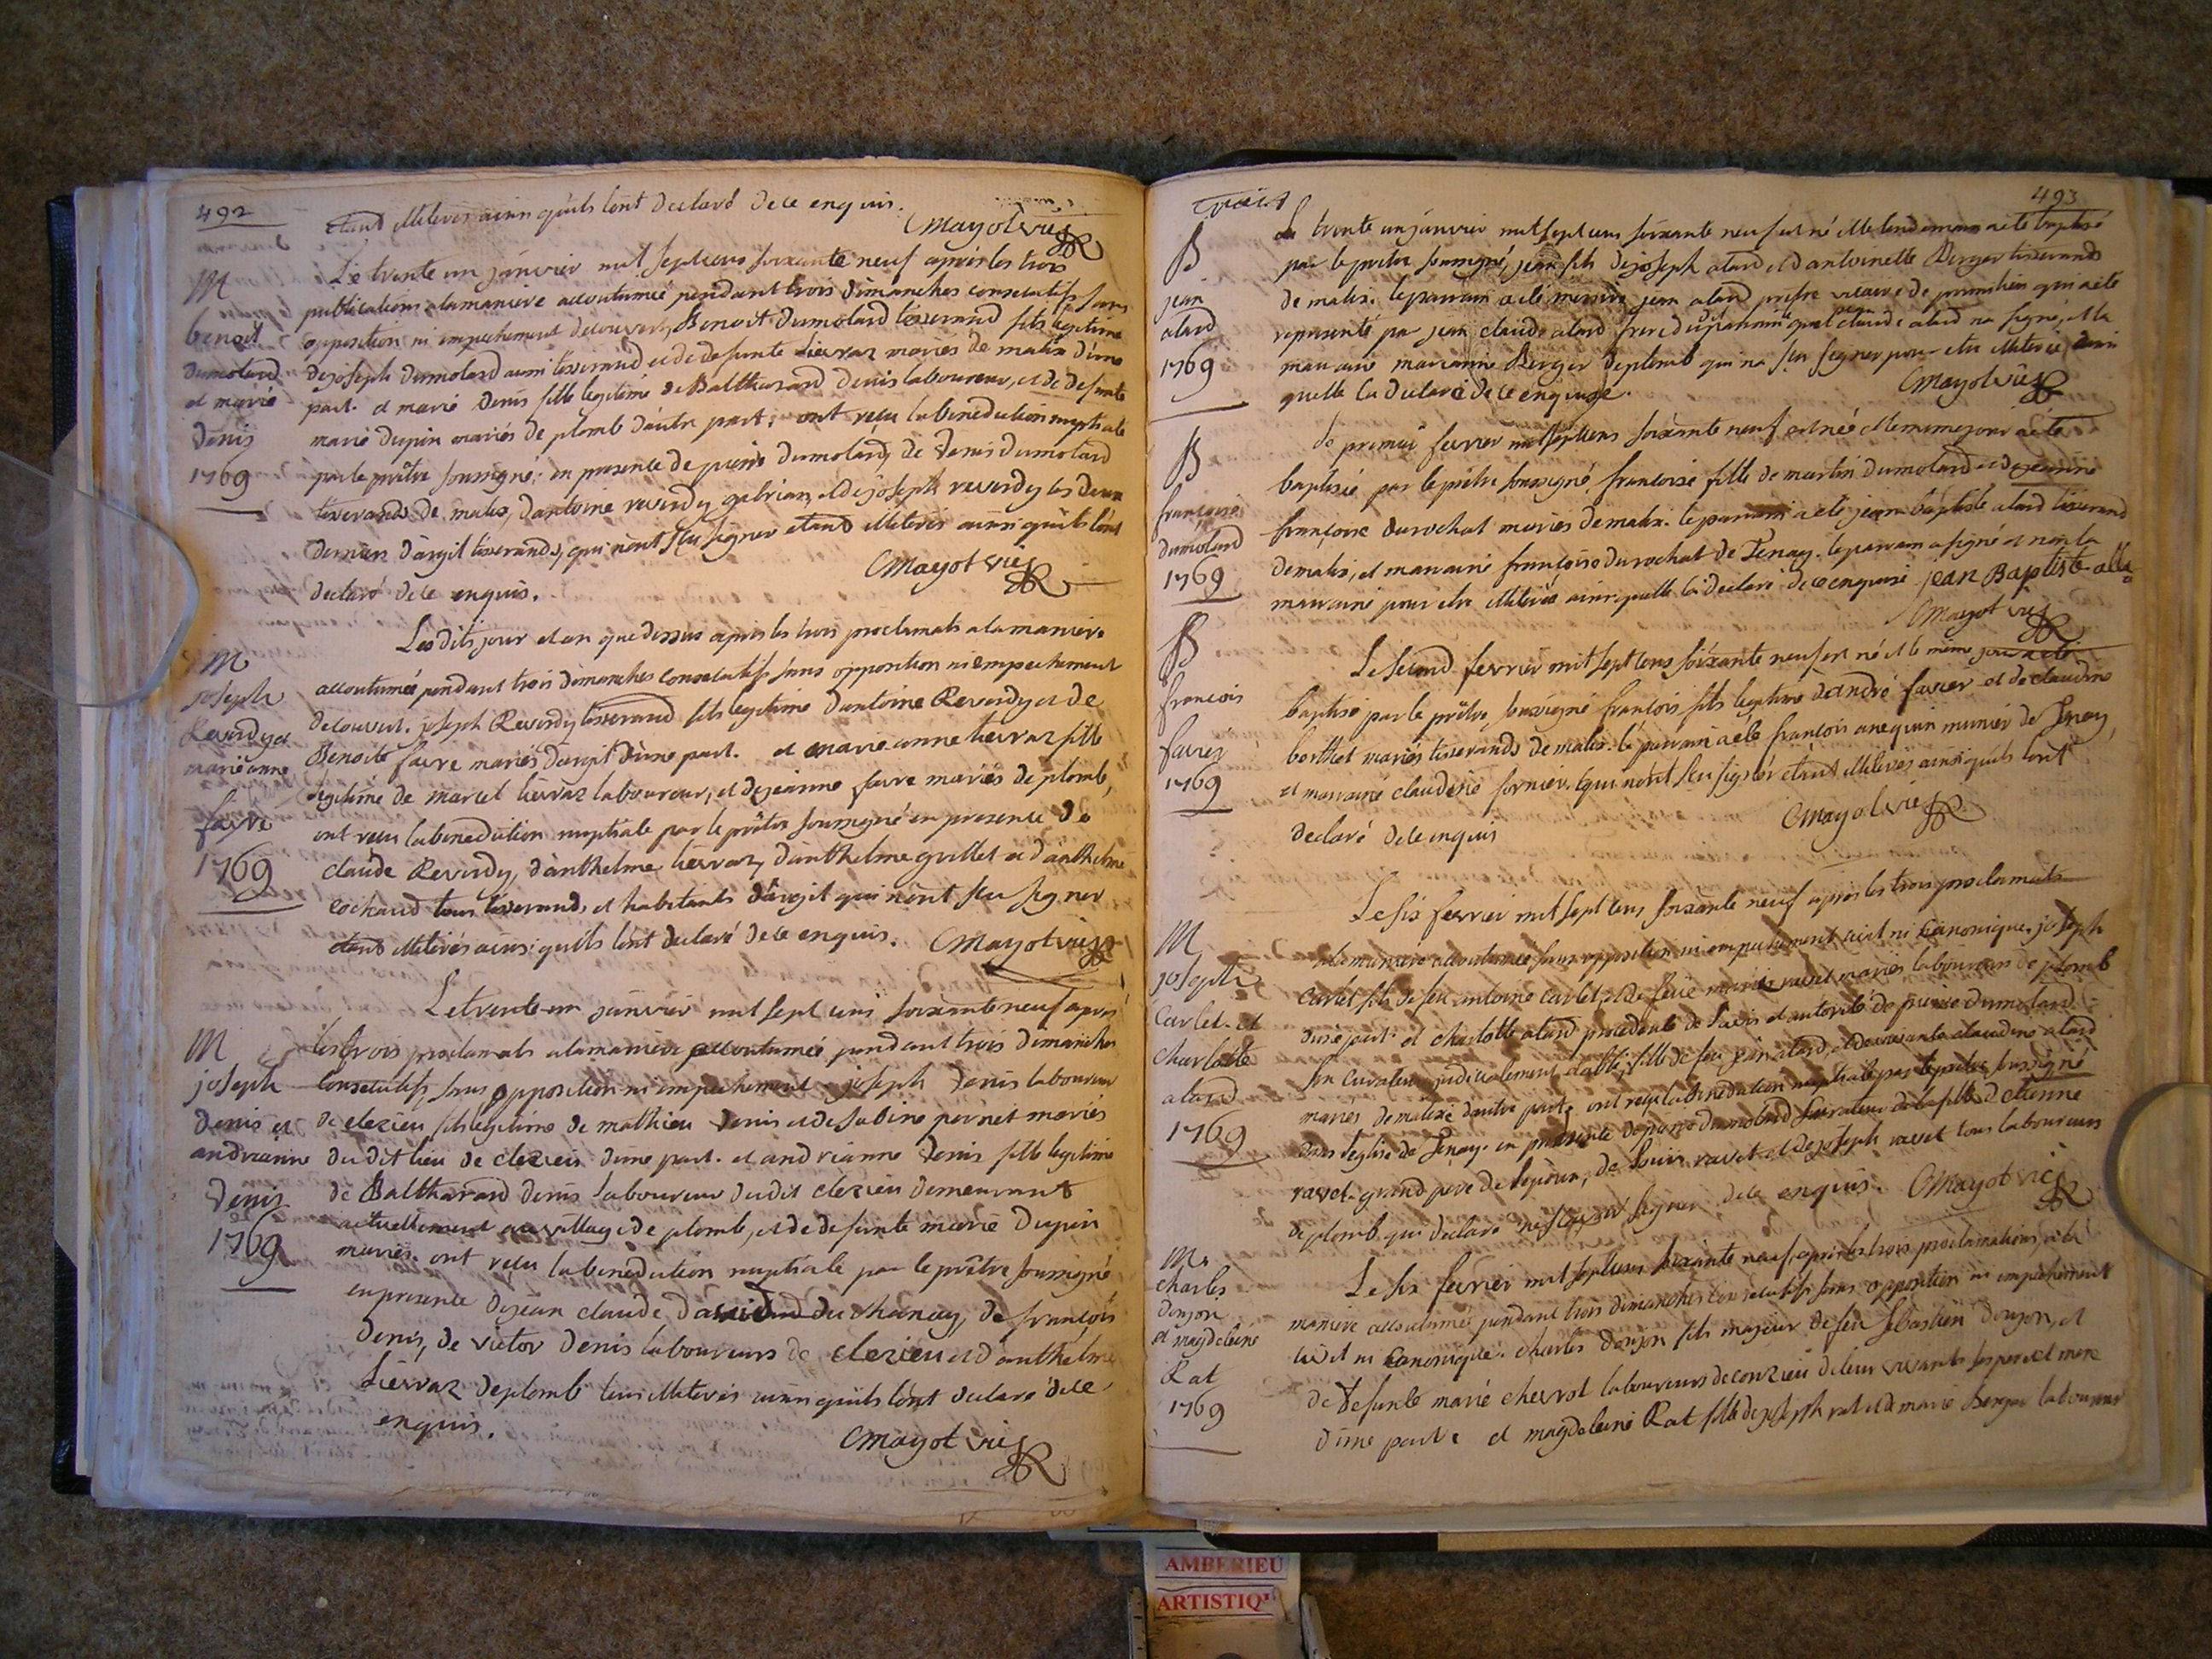 492
étant illiterés ainsi qu'ils l'ont declaré de ce enquis.
Mayot vic
M
benoit
dumolard
et marie
Denis
1769
Le trente un janvier mil sept cens soixante neuf après les trois
publications a la maniere accoutumée pendant trois dimanches consecutifs sans
opposition ni empechement decouvert, Benoit Dumolard tisserand fils legitime
de joseph dumolard aussi tisserand et de defunte Lievraz mariés de malix d'une
part. et marie Denis fille legitime de Balthazard Denis laboureur, et de defunte
marie Dupin mariés de plomb d'autre part; ont reçu la benediction nuptiale
par le prêtre soussigné; en presence de pierre Dumolard, de Denis Dumolard
tisserands de malix, d'antoine reverdy et de joseph reverdy les deux
derniers d'argit tisserands, qui n'ont sçu signer étant illiterés ainsi qu'ils l'ont
declaré de ce enquis.
Mayot vic
M
joseph
Reverdy et
marie anne
favre
1769
Les dits jour et an que dessus après les trois proclamats a la maniere
accoutumée pendant trois dimanches consecutifs sans opposition ni empechement
decouvert. joseph Reverdy tisserand fils legitime d'antoine Reverdy et de
Benoite favre mariés d'argit d'une part. et marie anne lievraz fille
legitime de marcel lievraz laboureur, et de jeanne favre mariés de plomb,
ont reçu la benediction nuptiale par le prêtre soussigné en presence de
claude Reverdy, d'anthelme lievraz, d'anthelme grillet et d'anthelme
cochaud tous tisserands, et habitants d'argit qui n'ont sçu signer
étant illiterés ainsi qu'ils l'ont declaré de ce enquis. Mayot vic
M
joseph
denis et
andrianne
Denis
1769
Le trente un janvier mil sept cens soixante neuf après
les trois proclamats a la maniere accoutumée pendant trois dimanches
consecutifs, sans opposition ni empechement joseph Denis laboureur
de clezieu fils legitime de mathieu Denis et de Sabine pernet mariés
du dit lieu de clezieu d'une part. et andrianne Denis fille legitime
de Balthazard denis laboureur du dit clezieu demeurant
actuellement au village de plomb, et de defunte marie Dupin
mariés. ont reçu la benediction nuptiale par le prêtre soussigné
en presence de jean claude du chanay, de françois
Denis, de victor Denis laboureurs de clezieu et d'anthelme
Lievraz de plomb tous illiterés ainsi qu'ils l'ont declaré de ce
enquis.
Mayot vic
493
B
jean
alard
1769
Le trente un janvier mil sept cens soixante neuf est né et le lendemain a été baptisé
par le prêtre soussigné, jean fils de joseph alard et d'antoinette Berger tisserands
de malix. le parrain a été messire jean alard prêtre vicaire de qui a été
representé par jean claude alard frere du dit parrain quel jean claude alard n'a signé, et la
marraine marianne Berger de plomb qui n'a sçu signer pour etre illiterée ainsi
qu'elle l'a declaré de ce enquise.
Mayot vic
B
françoise
dumolard
1769
Le premier fevrier mil sept cens soixante neuf est née et le meme jour a été
baptisée par le prêtre soussigné, françoise fille de martin dumolard et de jeanne
françoise durochat mariés de malix. le parrain a été jean baptiste alard tisserand
de malix, et marraine françoise durochat de Tenay. le parrain a signé et non la
marraine pour etre illiterée ainsi qu'elle l'a declaré de ce enquise jean Baptiste alla
Mayot vic
B
françois
favier
1769
Le second fevrier mil sept cens soixante neuf est né et le même jour a été
baptisé par le prêtre soussigné françois fils legitime d'andré favier et de claudine
berthet mariés tisserands de malix. le parrain a été françois anequin munier de Tenay,
et marraine claudine fornier, qui n'ont sçu signer étant illiterés ainsi qu'ils l'ont
declaré de ce enquis
Mayot vic
M
joseph
Carlet et
charlotte
alard
1769
Le six fevrier mil sept cens soixante neuf après les trois proclamats
a la maniere accoutumée sans opposition ni empechement civil ni canonique. joseph
Carlet fils de feu antoine carlet et de feüe marie ravet mariés laboureurs de plomb
d'une part. et charlotte alard procedante de l'avis et autorité de pierre dumolard
son curateur judicialement établi, fille de feu jean alard, et de vivante claudine alard
mariés de malix d'autre part, ont reçu la benediction nuptiale par le prêtre soussigné
dans l'eglise de Tenay. en presence de pierre dumolard curateur de la fille d'etienne
ravet grand pere de l'epoux, de louis ravet et de joseph ravet tous laboureurs
de plomb qui declaré ne signer de ce enquis. Mayot vic
M
charles
donjon
et magdeleine
Rat
1769
Le six fevrier mil sept cens soixante neuf, après les trois proclamations, a la
maniere accoutumée pendant trois dimanches consecutifs sans opposition ni empechement
civil ni canonique. charles donjon fils majeur de feu Sebastien Donjon, et
de defunte marie chevrot laboureurs de conzieu de leur vivants ses pere et mere
d'une part. et magdeleine Rat fille de joseph rat et de marie Berger laboureurs
AMBERIEU
ARTISTIQ